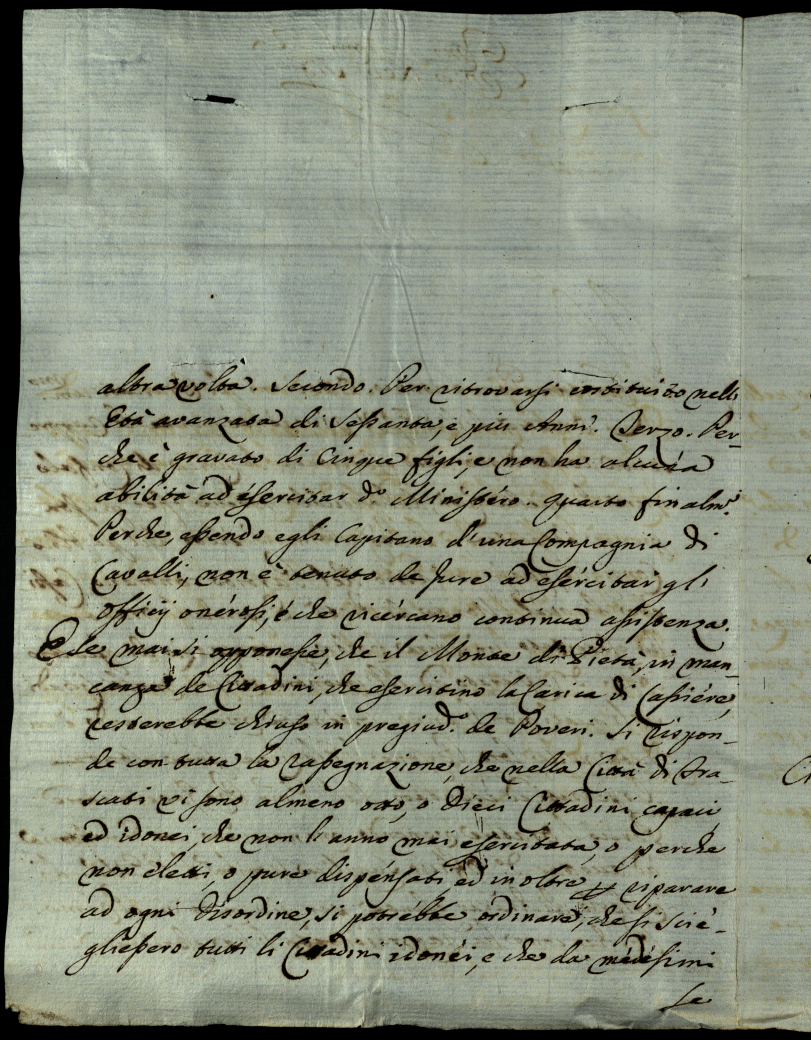 altra volta. Secondo. Per ritrovarsi costituito nell
Età avanzata di Sessanta, e più Anni. Terzo. Per-
che è gravato di Cinque figli, e non ha alcuna
abilità ad esercitar d.º Ministéro. quarto finalm.e
Perche, essendo egli Capitano d'una Compagnia di
Cavalli, non è tenuto de Jure ad esércitar gl'
officij onérosi, é che ricércano continua assistenza.
E se mai si opponesse, che il Monte di Pietà, in man-
canza de Cittadini, che esercitino la Carica di Cassiére,
resterebbe chiuso in pregiud.º de Poveri. Si rispon-
de con tutta la rassegnazione, che nella Città di Fra-
scati vi sono almeno otto, o dieci Cittadini capaci,
ed idonei, che non l'anno mai esercitata, o perche
non eletti, o pure dispénsati ed in oltre riparare
ad ogni disordine, si potrébbe ordinare, che si scié-
gliessero tutti li Cittadini idonéi, e che da medésimi
se